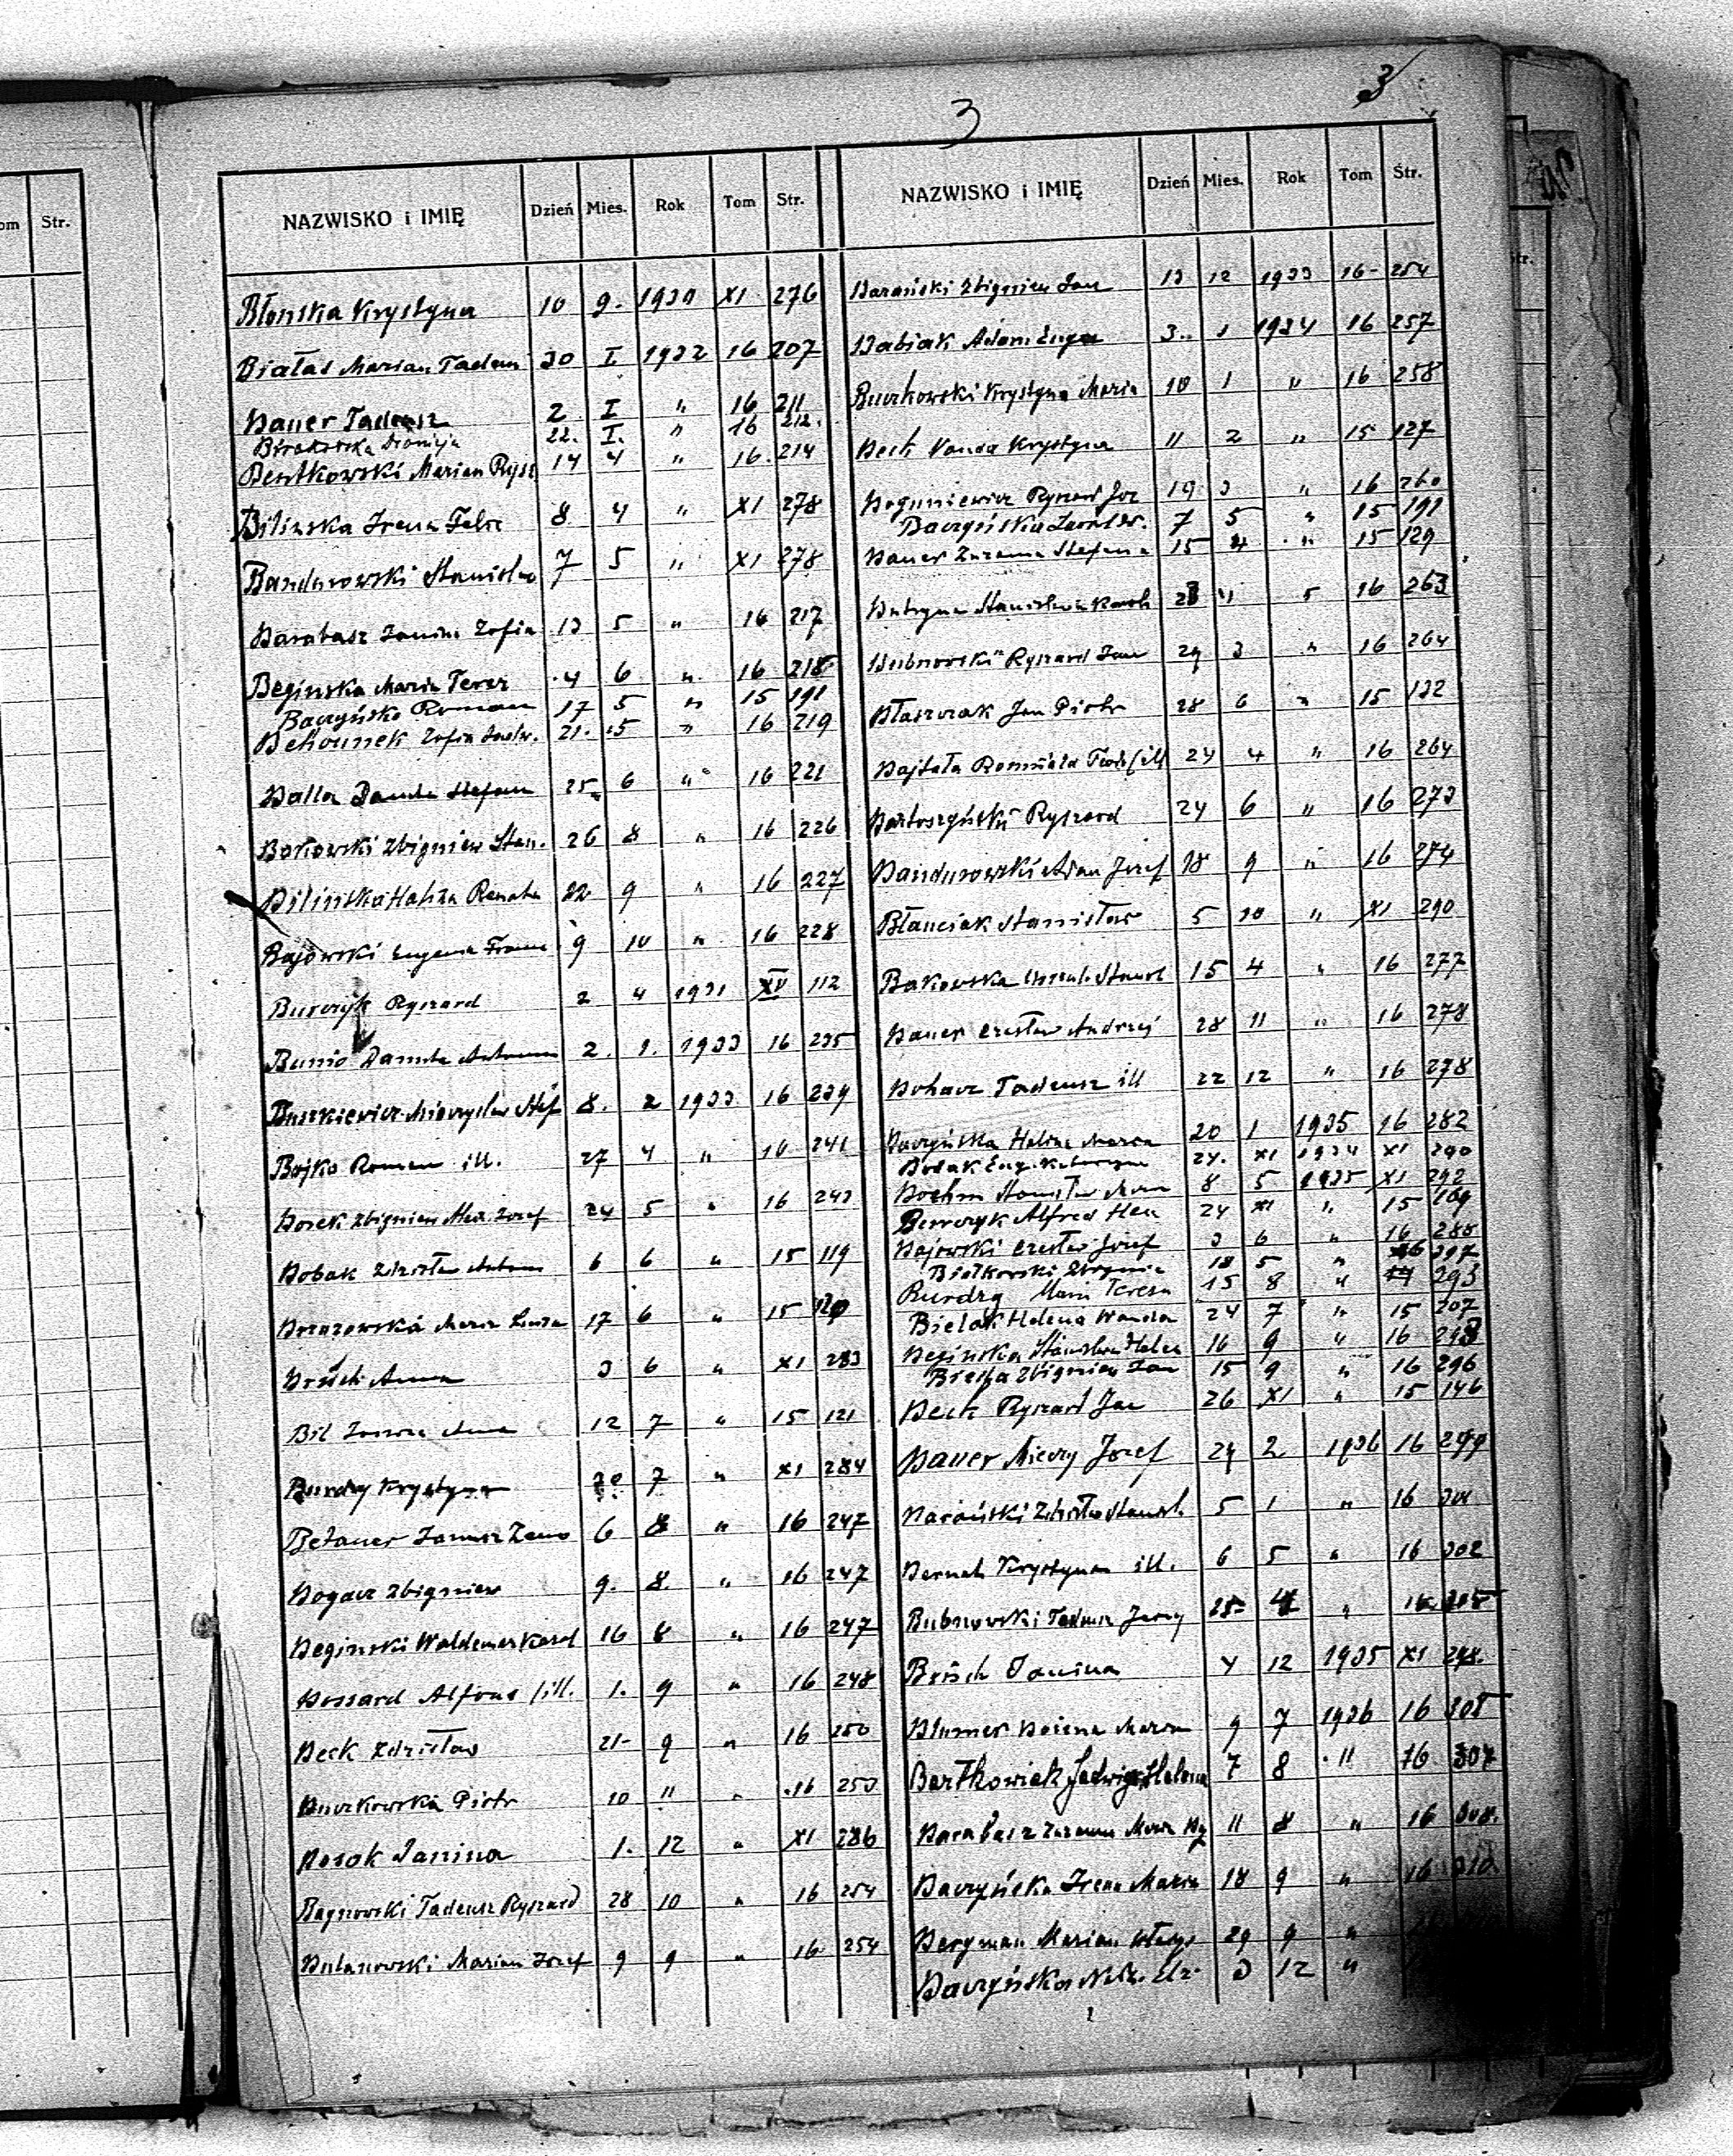 3
3
om Str.
NAZWISKO i IMIĘ Dzień Mies. Rok Tom Str.
Błonska Krystyna 10 9. 1930 XI 276
Białas Marian Tadeus 30 I 1932 16 207
Bauer Tadeusz 2 I " 16 211
22. I. " 16 212.
Bentkowski Marian Rysz 14 4 " 16. 214
Bilinska Irena Felic 8 4 " XI 278
Bandurowski Stanisław 7 5 " XI 278
Barabasz Janina Zofia 13 5 " 16 217
Beginska Maria Teres 4 6 " 16 218
Baczyńsko Roman 17 5 " 15 191
Behounek Zofia Jadw. 21. 5 " 16 219
Balla Danuta Stefan 25 6 " 16 221
Borkowski Zbigniew Stan. 26 8 " 16 226
Bilińska Halina Renata 22 9 " 16 227
Bajowski Eugenia Franc 9 10 " 16 228
Burczyk Ryszard 2 4 1931 XV 112
Bunio Danuta 2. 1. 1933 16 235
Buszkiewicz Mieczysław Stef 8. 2 1933 16 239
Bojko Roman ill. 27 4 " 16 241
Bosek Zbigniew Alex. Józef 24 5 " 16 243
Bobak Zdzisław 6 6 " 15 119
Brzozowska Maria 17 6 " 15 120
Brüsch Anna 3 6 " XI 283
Bil Janina Anna 12 7 " 15 121
Burdzy Krystyna 7 " XI 284
Betauer Janusz Zeno 6 8 " 16 247
Bogacz Zbigniew 9. 8 " 16 247
Beginski Waldemar Karol 16 8 " 16 247
Bossard Alfons ill. 1. 9 " 16 248
Beck Zdzisław 21- 9 " 16 250
Buczkowska Piotr 10 11 " 16 250
Bosok Janina 1. 12 " XI 286
Bagnowski Tadeusz Ryszard 28 10 " 16 254
Bulanowski Marian Józef 9 9 " 16 254
NAZWISKO i IMIĘ Dzień Mies. Rok Tom Str.
Barański Zbigniew Jan 13 12 1933 16- 254
Babiak Adam Euge 3.. 1 1934 16 257
Buczkowski Krystyna Maria 10 1 " 16 258
Bech Vanda Krystyna 11 2 " 15 127
Boguniewicz Ryszard Joz 19 3 " 16 260
Baczyńska 7 5 " 15 191
Bauer Zuzanna Stefania 15 4 " 15 129
Stanisława Karol 4 " 16 263
Bubnowski Ryszard Jan 29 3 " 16 264
Błaszczak Jan Piotr 28 6 " 15 132
Bajtała Romualda Teod (ill 24 4 " 16 264
Bartoszyński Ryszard 24 6 " 16 273
Bandurowski Adam Józef 18 9 " 16 274
Błanciak Stanisław 5 10 " XI 290
Bakowska Urszula Stanisł 15 4 " 16 277
Bauer Czesław Andrzej 28 11 " 16 278
Bohacz Tadeusz ill 22 12 " 16 278
Baczyńska Halina Maria 20 1 1935 16 282
Bobak Eug. Katarzyna 24. XI 1934 XI 290
Boehm Stanisław 8 5 1935 XI 292
Burczyk Alfred Hen 24 XI " 15 169
Bajowski Czesław Józef 3 6 " 16 288
Białkowski Zbigniew 18 5 "
Burdzy Maria Teresa 15 8 " 293
Bielak Helena Wanda 24 7 " 15 207
Beginska Stanisława Helen 16 9 " 16
Bieda Zbigniew Jan 15 9 " 16 296
Beck Ryszard Jan 26 XI " 15 146
Bauer Mieczy Józef 29 2 1936 16 299
Barański Zdzisław Stanisł. 5 1 " 16 301
Bernat Krystyna ill. 6 5 " 16 302
Bubnowski Tadeusz Jerzy 25 4 " 16 305
Brüsch Janina 4 12 1935 XI 298.
Blumer Bożena Maria 9 7 1936 16 305
Bartkowiak Jadwiga Helena 7 8 " 16 307
Barabasz Zuzanna Maria 11 8 " 16 308.
Baczyńska Irena Maria 18 9 " 16 310
Bergman Marian Władys 29 9 "
Baczyńska 3 12 "